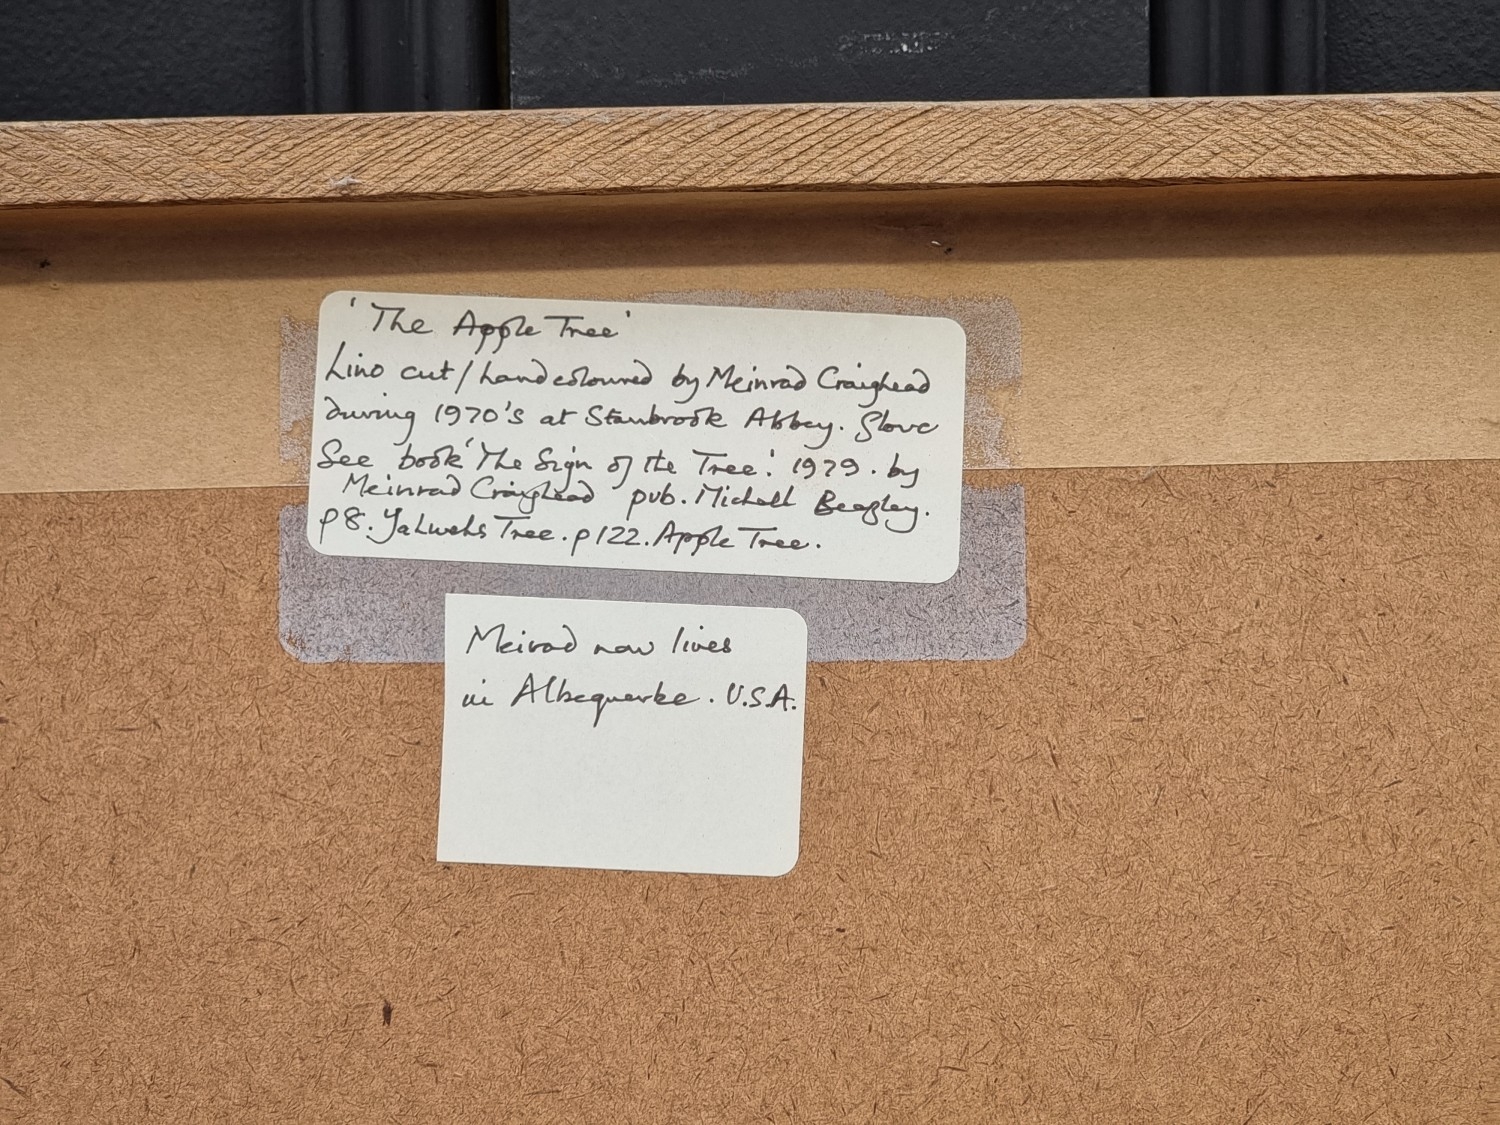 'The Apple Tree'
Lino cut/handcoloured by Meinrad Craighead
during 1970's at Stanbrook Abbey. Glouc
See book 'The Sign of the Tree'. 1979. by
Meinrad Craighead pub. Michell Beazley.
p8. Yahwehs Tree. p122. Apple Tree.
Meirad now lives
in Albequerke. U.S.A.